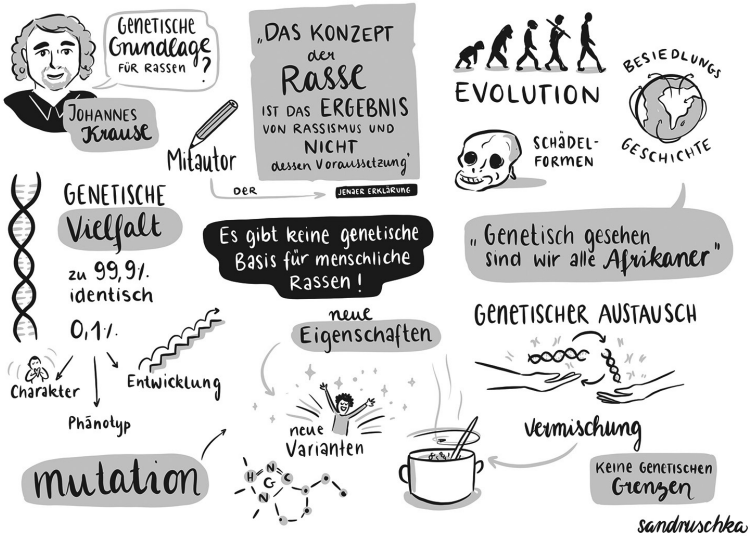 GENETISCHE
Grundlage
FÜR RASSEN ?
JOHANNES
Krause
Mitautor
DER
„DAS KONZEPT
der
Rasse
IST DAS ERGEBNIS
VON RASSISMUS UND
NICHT
dessen Voraussetzung'
JENAER ERKLÄRUNG
EVOLUTION
SCHÄDEL-
FORMEN
BESIEDLUNGS
GESCHICHTE
GENETISCHE
Vielfalt
zu 99,9%
identisch
0,1%
Charakter
Phänotyp
Entwicklung
Es gibt keine genetische
Basis für menschliche
Rassen!
„Genetisch gesehen
sind wir alle Afrikaner"
neue
Eigenschaften
neue
Varianten
mutation
H N C
G
N
GENETISCHER AUSTAUSCH
Vermischung
KEINE GENETISCHEN
Grenzen
sandruschka